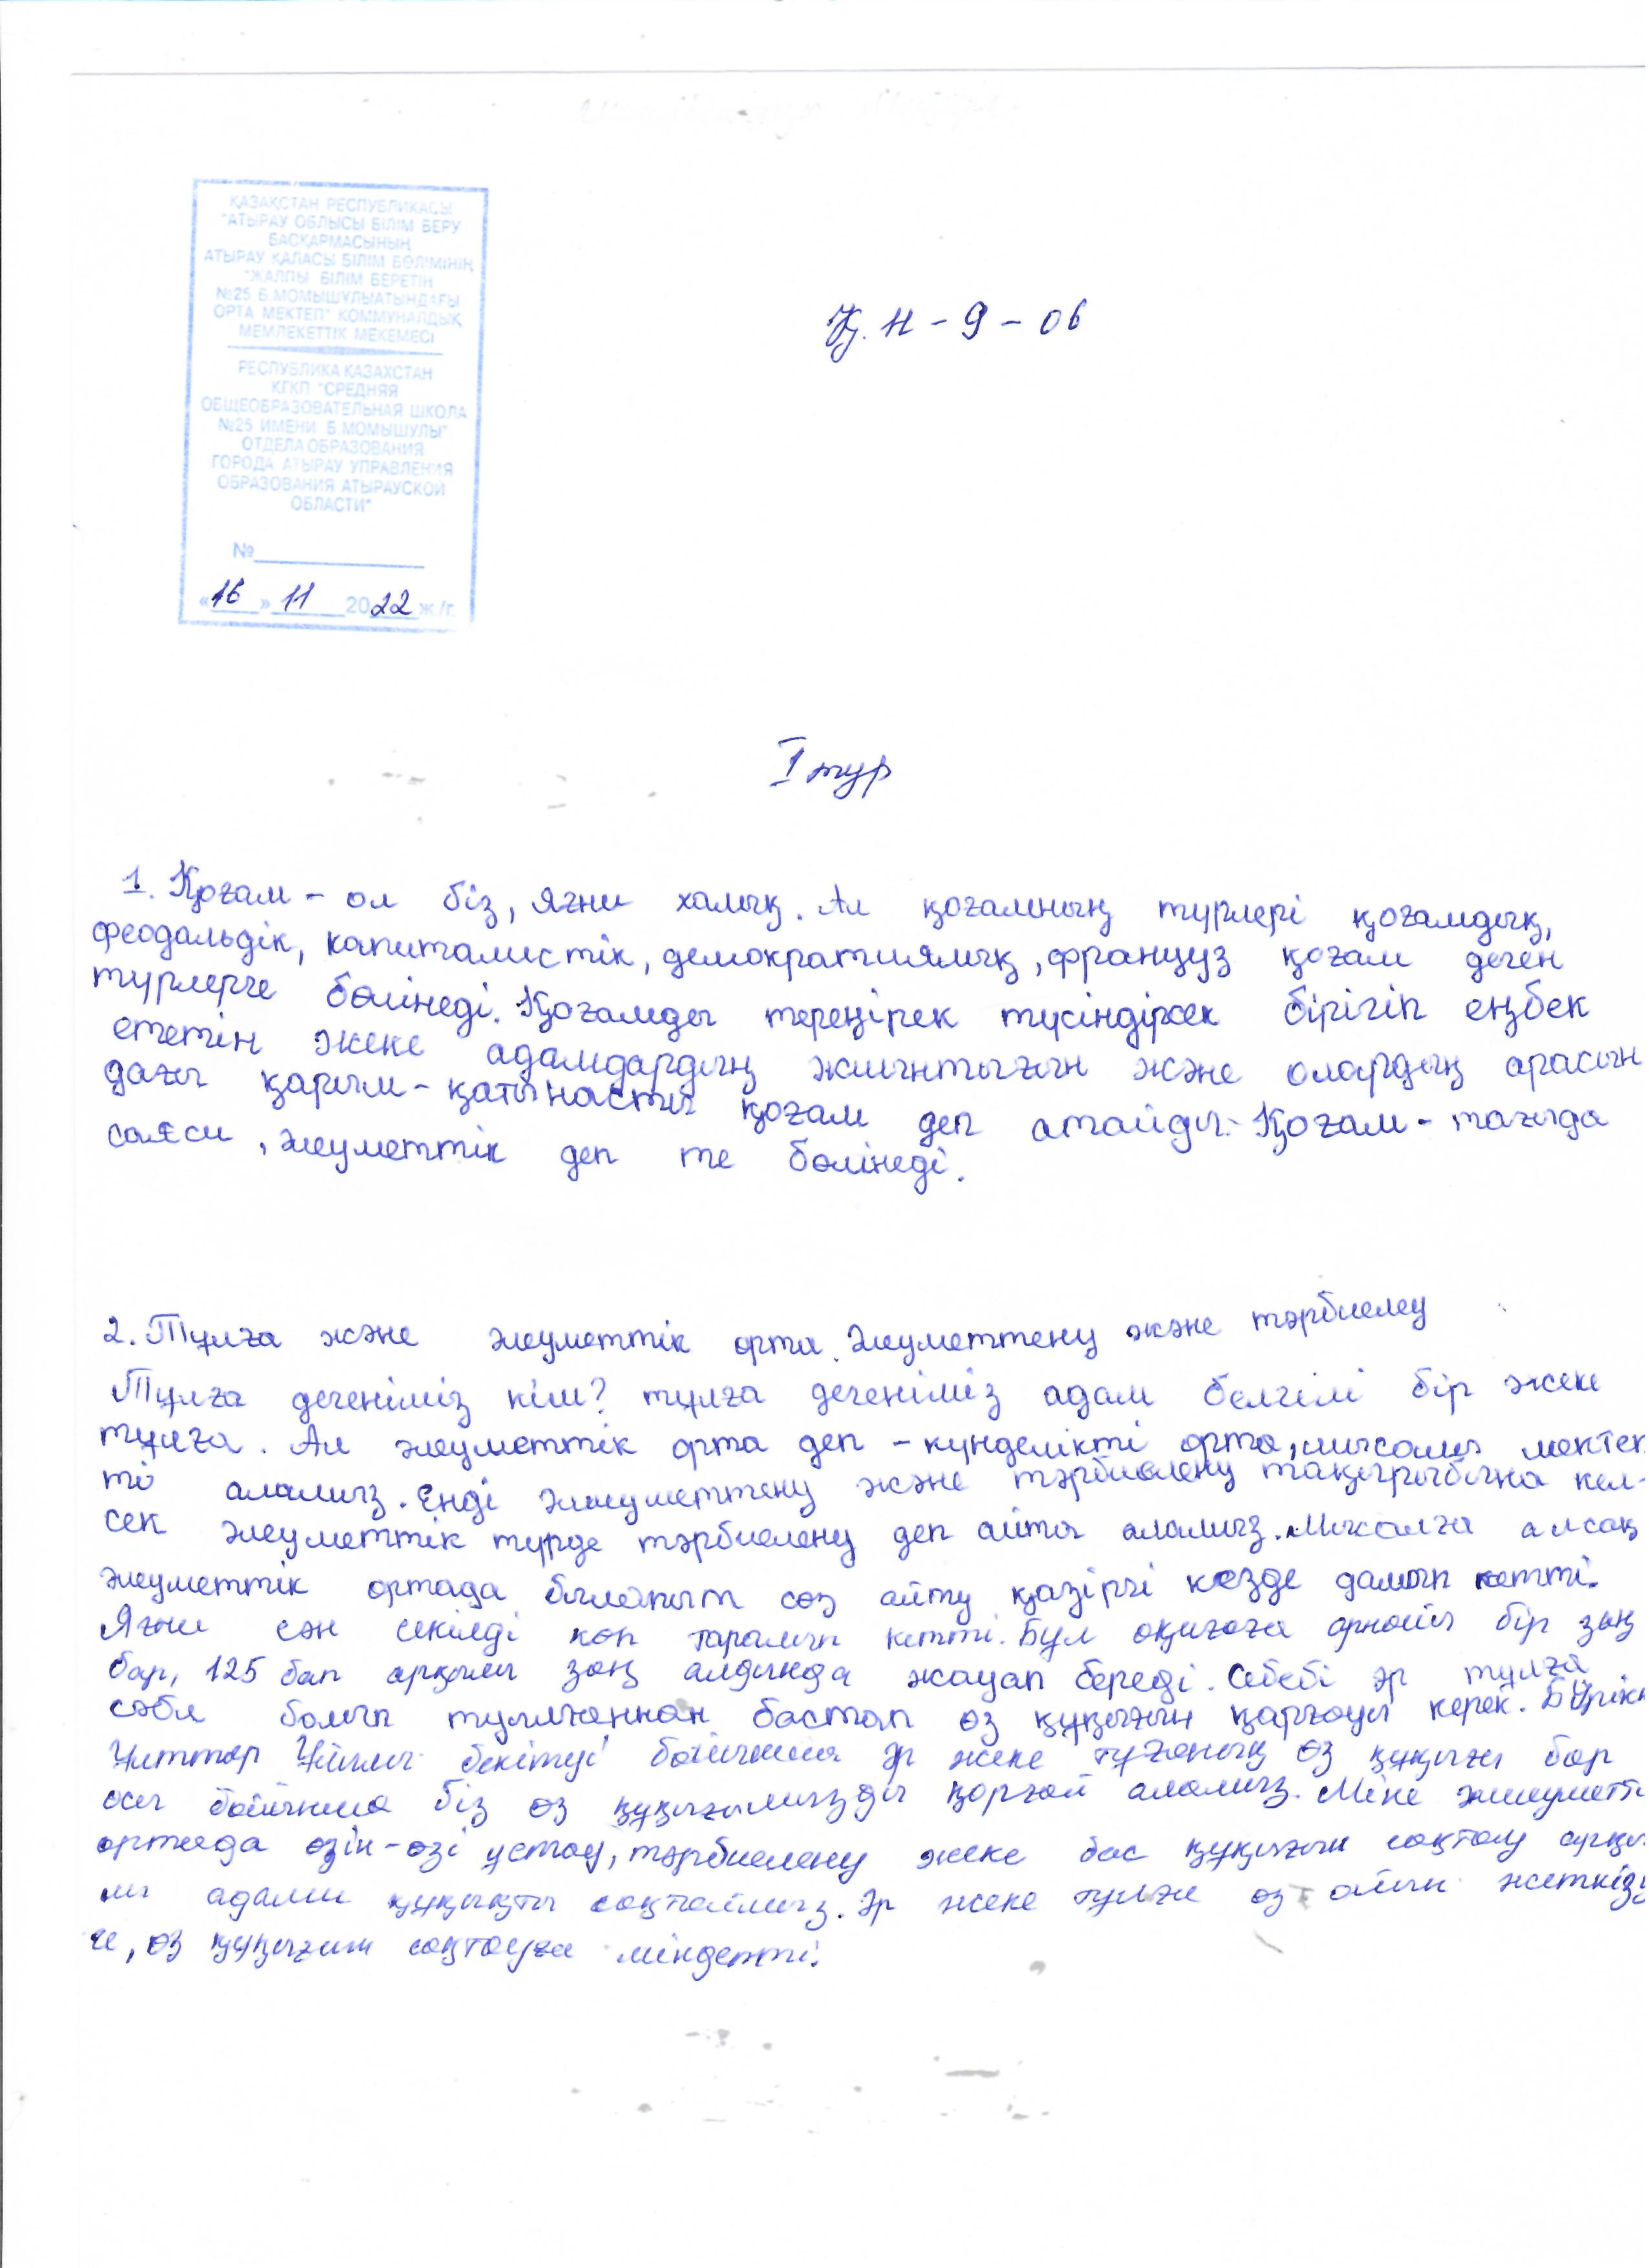 ҚАЗАҚСТАН РЕСПУБЛИКАСЫ
"АТЫРАУ ОБЛЫСЫ БІЛІМ БЕРУ
БАСҚАРМАСЫНЫҢ
АТЫРАУ ҚАЛАСЫ БІЛІМ БӨЛІМІНІҢ
"ЖАЛПЫ БІЛІМ БЕРЕТІН
№25 Б.МОМЫШУЛЫАТЫНДАҒЫ
ОРТА МЕКТЕП" КОММУНАЛДЫҚ
МЕМЛЕКЕТТІК МЕКЕМЕСІ
РЕСПУБЛИКА КАЗАХСТАН
КГКП "СРЕДНЯЯ
ОБЩЕОБРАЗОВАТЕЛЬНАЯ ШКОЛА
№25 ИМЕНИ Б.МОМЫШУЛЫ"
ОТДЕЛА ОБРАЗОВАНИЯ
ГОРОДА АТЫРАУ УПРАВЛЕНИЯ
ОБРАЗОВАНИЯ АТЫРАУСКОЙ
ОБЛАСТИ"
№
«16» 11 2022 ж/г.
Қ.Н-9-06
I тур
1. Қоғам - ол біз, яғни халық. Ал қоғамның түрлері қоғамдық,
феодальдік, капиталистік, демократиялық, француз қоғам деген
түрлерге бөлінеді. Қоғамды тереңірек түсіндірсек бірігіп еңбек
ететін жеке адамдардың жиынтығын және олардың арасын
дағы қарым-қатынасты қоғам деп атайды. Қоғам - тағыда
саяси, әлеуметтік деп те бөлінеді.
2. Тұлға және әлеуметтік орта. Әлеуметтену және тәрбиелеу
Тұлға дегеніміз кім? тұлға дегеніміз адам белгілі бір жеке
тұлға. Ал әлеуметтік орта деп - күнделікті орта, мысалы мектеп
ті аламыз. Енді әлеуметтену және тәрбиелену тақырыбына кел-
сек әлеуметтік түрде тәрбиелену деп айта аламыз. Мысалға алсақ
әлеуметтік ортада былапыт сөз айту қазіргі кезде дамып кетті.
Яғни сән секілді көп таралып кетті. Бұл оқиғаға арнайы бір заң
бар, 125 бап арқылы заң алдында жауап береді. Себебі әр тұлға
сәби болып туылғаннан бастап өз құқығын қорғауы керек. Бірікк
Ұлттар Ұйымы бекітуі бойынша әр жеке тұғаның өз құқығы бар
осы бойынша біз өз құқығымызды қорғай аламыз. Міне әлеуметті
ортада өзін-өзі ұстау, тәрбиелену жеке бас құқығын сақтау арқы
лы адами құқықты сақтаймыз. Әр жеке тұлға өз ойын жеткізу
ге, өз құқығын сақтауға міндетті.